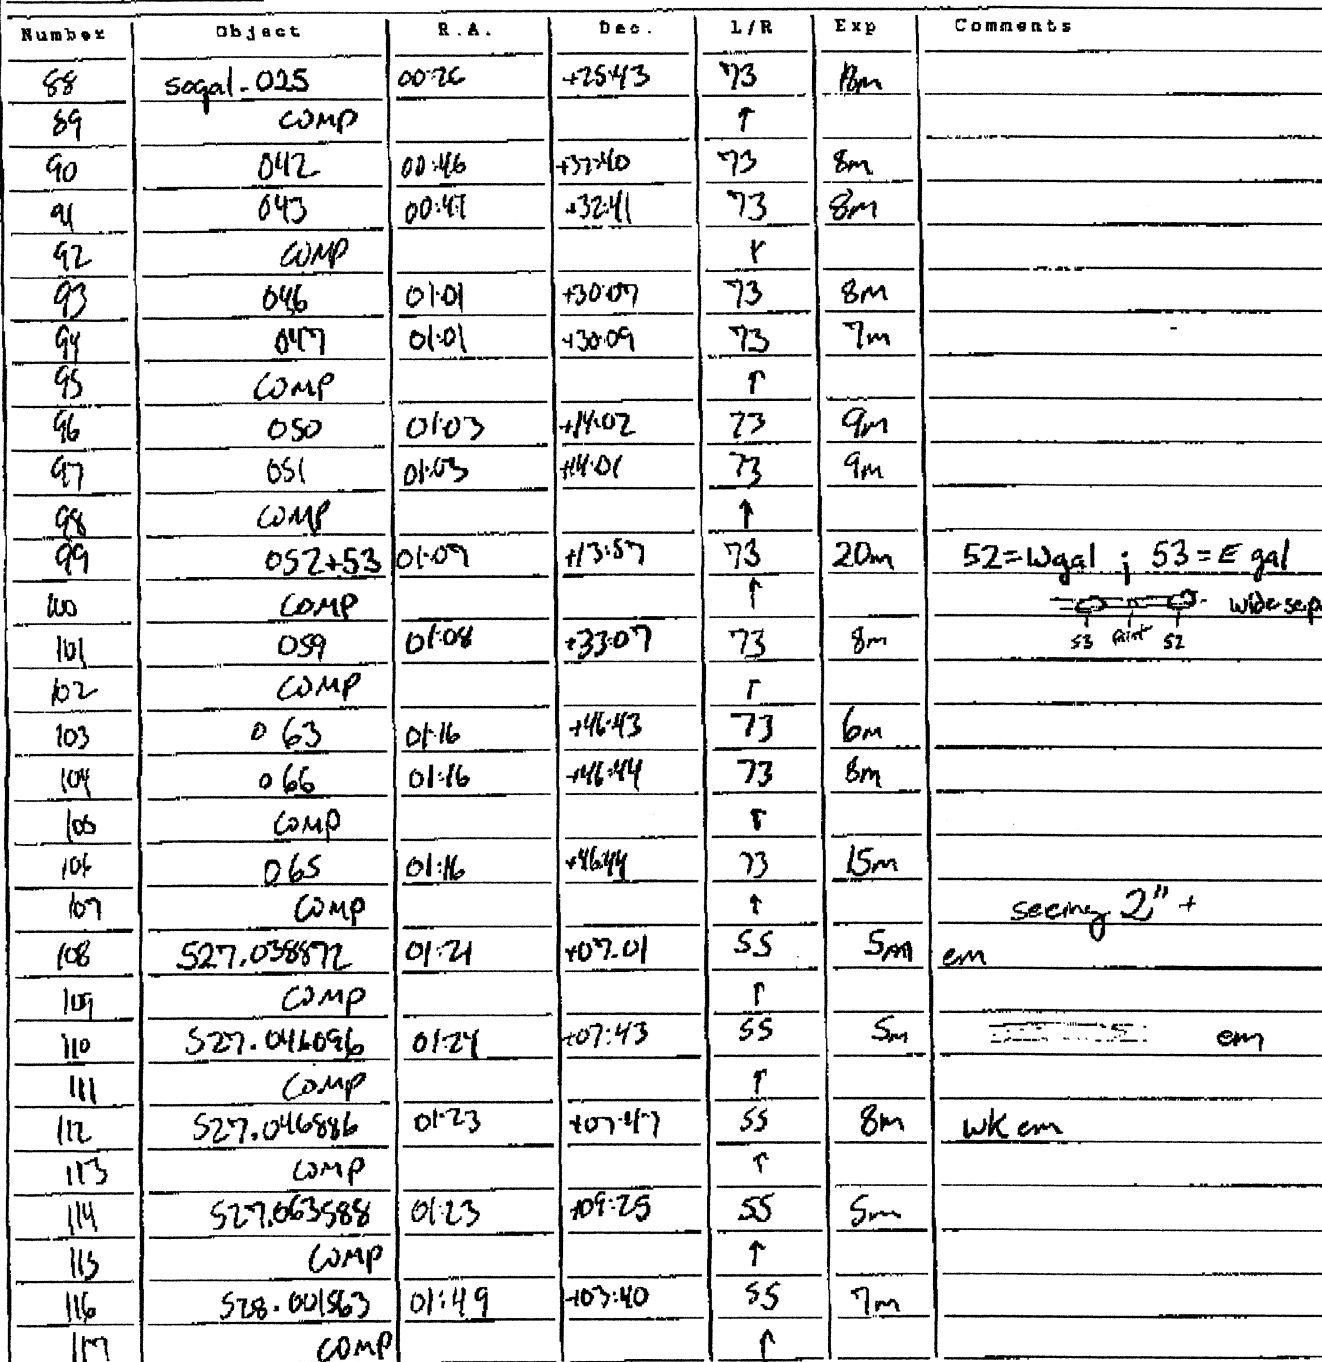 Number Object R.A. Dec. L/R Exp Comments
88 sogal-025 00:26 +25:43 73 18m
89 COMP ↑
90 042 00:46 +32:40 73 8m
91 043 00:47 +32:41 73 8m
92 COMP ↑
93 046 01:01 +30:07 73 8m
94 047 01:01 +30:09 73 7m
95 COMP ↑
96 050 01:03 +14:02 73 9m
97 051 01:03 +14:01 73 9m
98 COMP ↑
99 052+53 01:07 +13:57 73 20m 52=Wgal ; 53=E gal
100 COMP ↑ wide sep
101 059 01:08 +33:07 73 8m 53 faint 52
102 COMP ↑
103 063 01:16 +46:43 73 6m
104 066 01:16 +46:44 73 8m
105 COMP ↑
106 065 01:16 +46:44 73 15m
107 COMP ↑ seeing 2" +
108 527.038872 01:21 +07:01 55 5m em
109 COMP ↑
110 527.046096 01:24 +07:43 55 5m em
111 COMP ↑
112 527.046886 01:23 +07:47 55 8m wk em
113 COMP ↑
114 527.063588 01:23 +09:25 55 5m
115 COMP ↑
116 528.001563 01:49 +03:40 55 7m
117 COMP ↑